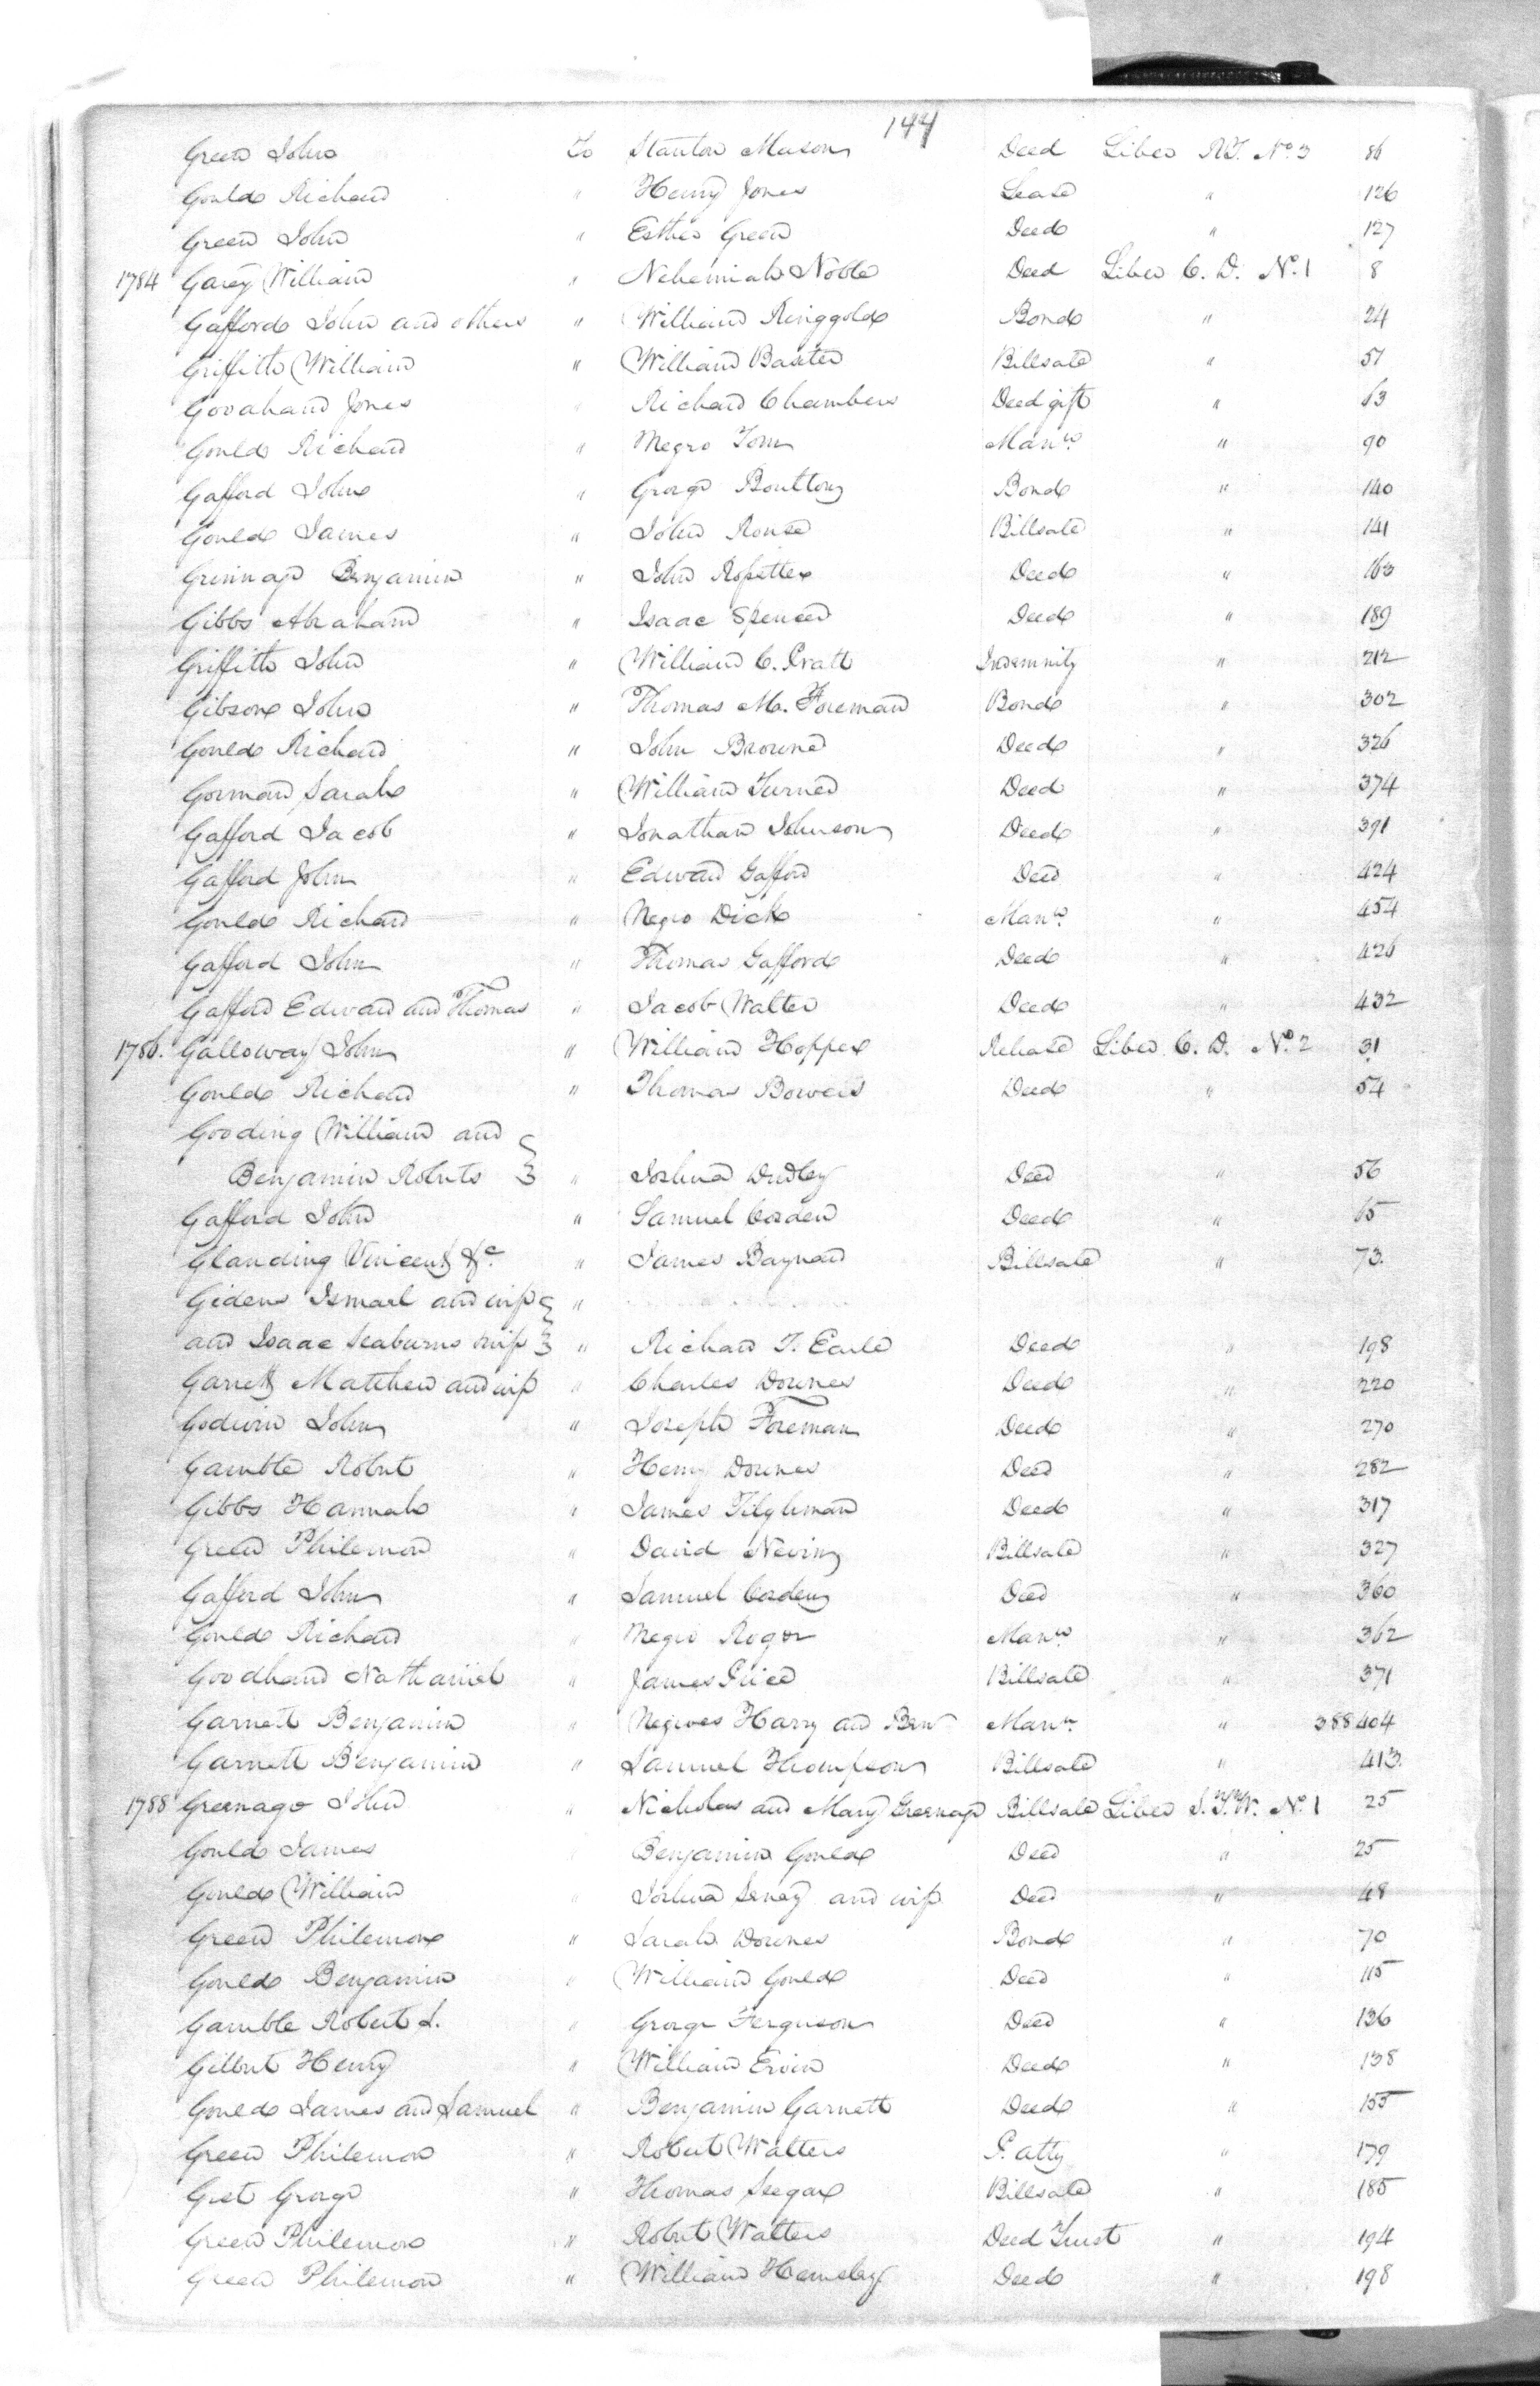 144
Green John To Stanton Mason Deed Liber R.T. No. 3 86
Gould Richard " Henry Jones Lease " 126
Green John " Esther Green Deed " 127
1784 Garey William " Nehemiah Noble Deed Liber C. D. No. 1 8
Gafford John and others " William Ringgold Bond " 24
Griffith William " William Baxter Billsale " 51
Goodhand Jones " Richard Chambers Deed gift " 63
Gould Richard " Negro Tom Mann. " 90
Gafford John " George Boulton Bond " 140
Gould James " John Rouse Billsale " 141
Grinnage Benjamin " John Deed " 163
Gibbs Abraham " Isaac Spencer Deed " 189
Griffith John " William C. Pratt Indemnity " 212
Gibson John " Thomas M. Foreman Bond " 302
Gould Richard " John Browne Deed " 326
Gorman Sarah " William Turner Deed " 374
Gafford Jacob " Jonathan Johnson Deed " 391
Gafford John " Edward Gafford Deed " 424
Gould Richard " Negro Dick Mann. " 454
Gafford John " Thomas Gafford Deed " 426
Gafford Edward and Thomas " Jacob Walter Deed " 432
1786. Galloway John " William Hopper Release Liber C. D. No. 2 31
Gould Richard " Thomas Bowers Deed " 54
Gooding William and
Benjamin Roberts " Joshua Dudley Deed " 56
Gafford John " Samuel Corden Deed " 65
Glanding Vincent &c. " James Baynard Billsale " 73.
Gidens Ismael and wife "
and Isaac Seaburns wife " Richard T. Earle Deed " 198
Garrett Matthew and wife " Charles Downes Deed " 220
Godwin John " Joseph Foreman Deed " 270
Gamble Robert " Henry Downes Deed " 282
Gibbs Hannah " James Tilghman Deed " 317
Green Philemon " David Nevin Billsale " 327
Gafford John " Samuel Corden Deed " 360
Gould Richard " Negro Roger Mann. " 362
Goodhand Nathaniel " James Price Billsale " 371
Garnett Benjamin " Negroes Harry and Ben Mann. " 388 404
Garnett Benjamin " Samuel Thompson Billsale " 413.
1788 Greenage John " Nicholas and Mary Greenage Billsale Liber S.T.W. No. 1 25
Gould James " Benjamin Gould Deed " 25
Gould William " Joshua Seney and wife Deed " 48
Green Philemon " Sarah Downes Bond " 70
Gould Benjamin " William Gould Deed " 115
Gamble Robert S. " George Ferguson Deed " 136
Gilbert Henry " William Ervin Deed " 138
Gould James and Samuel " Benjamin Garnett Deed " 155
Green Philemon " Robert Walters P. atty " 179
Gist George " Thomas Seegar Billsale " 185
Green Philemon " Robert Walters Deed Trust " 194
Green Philemon " William Hemsley Deed " 198